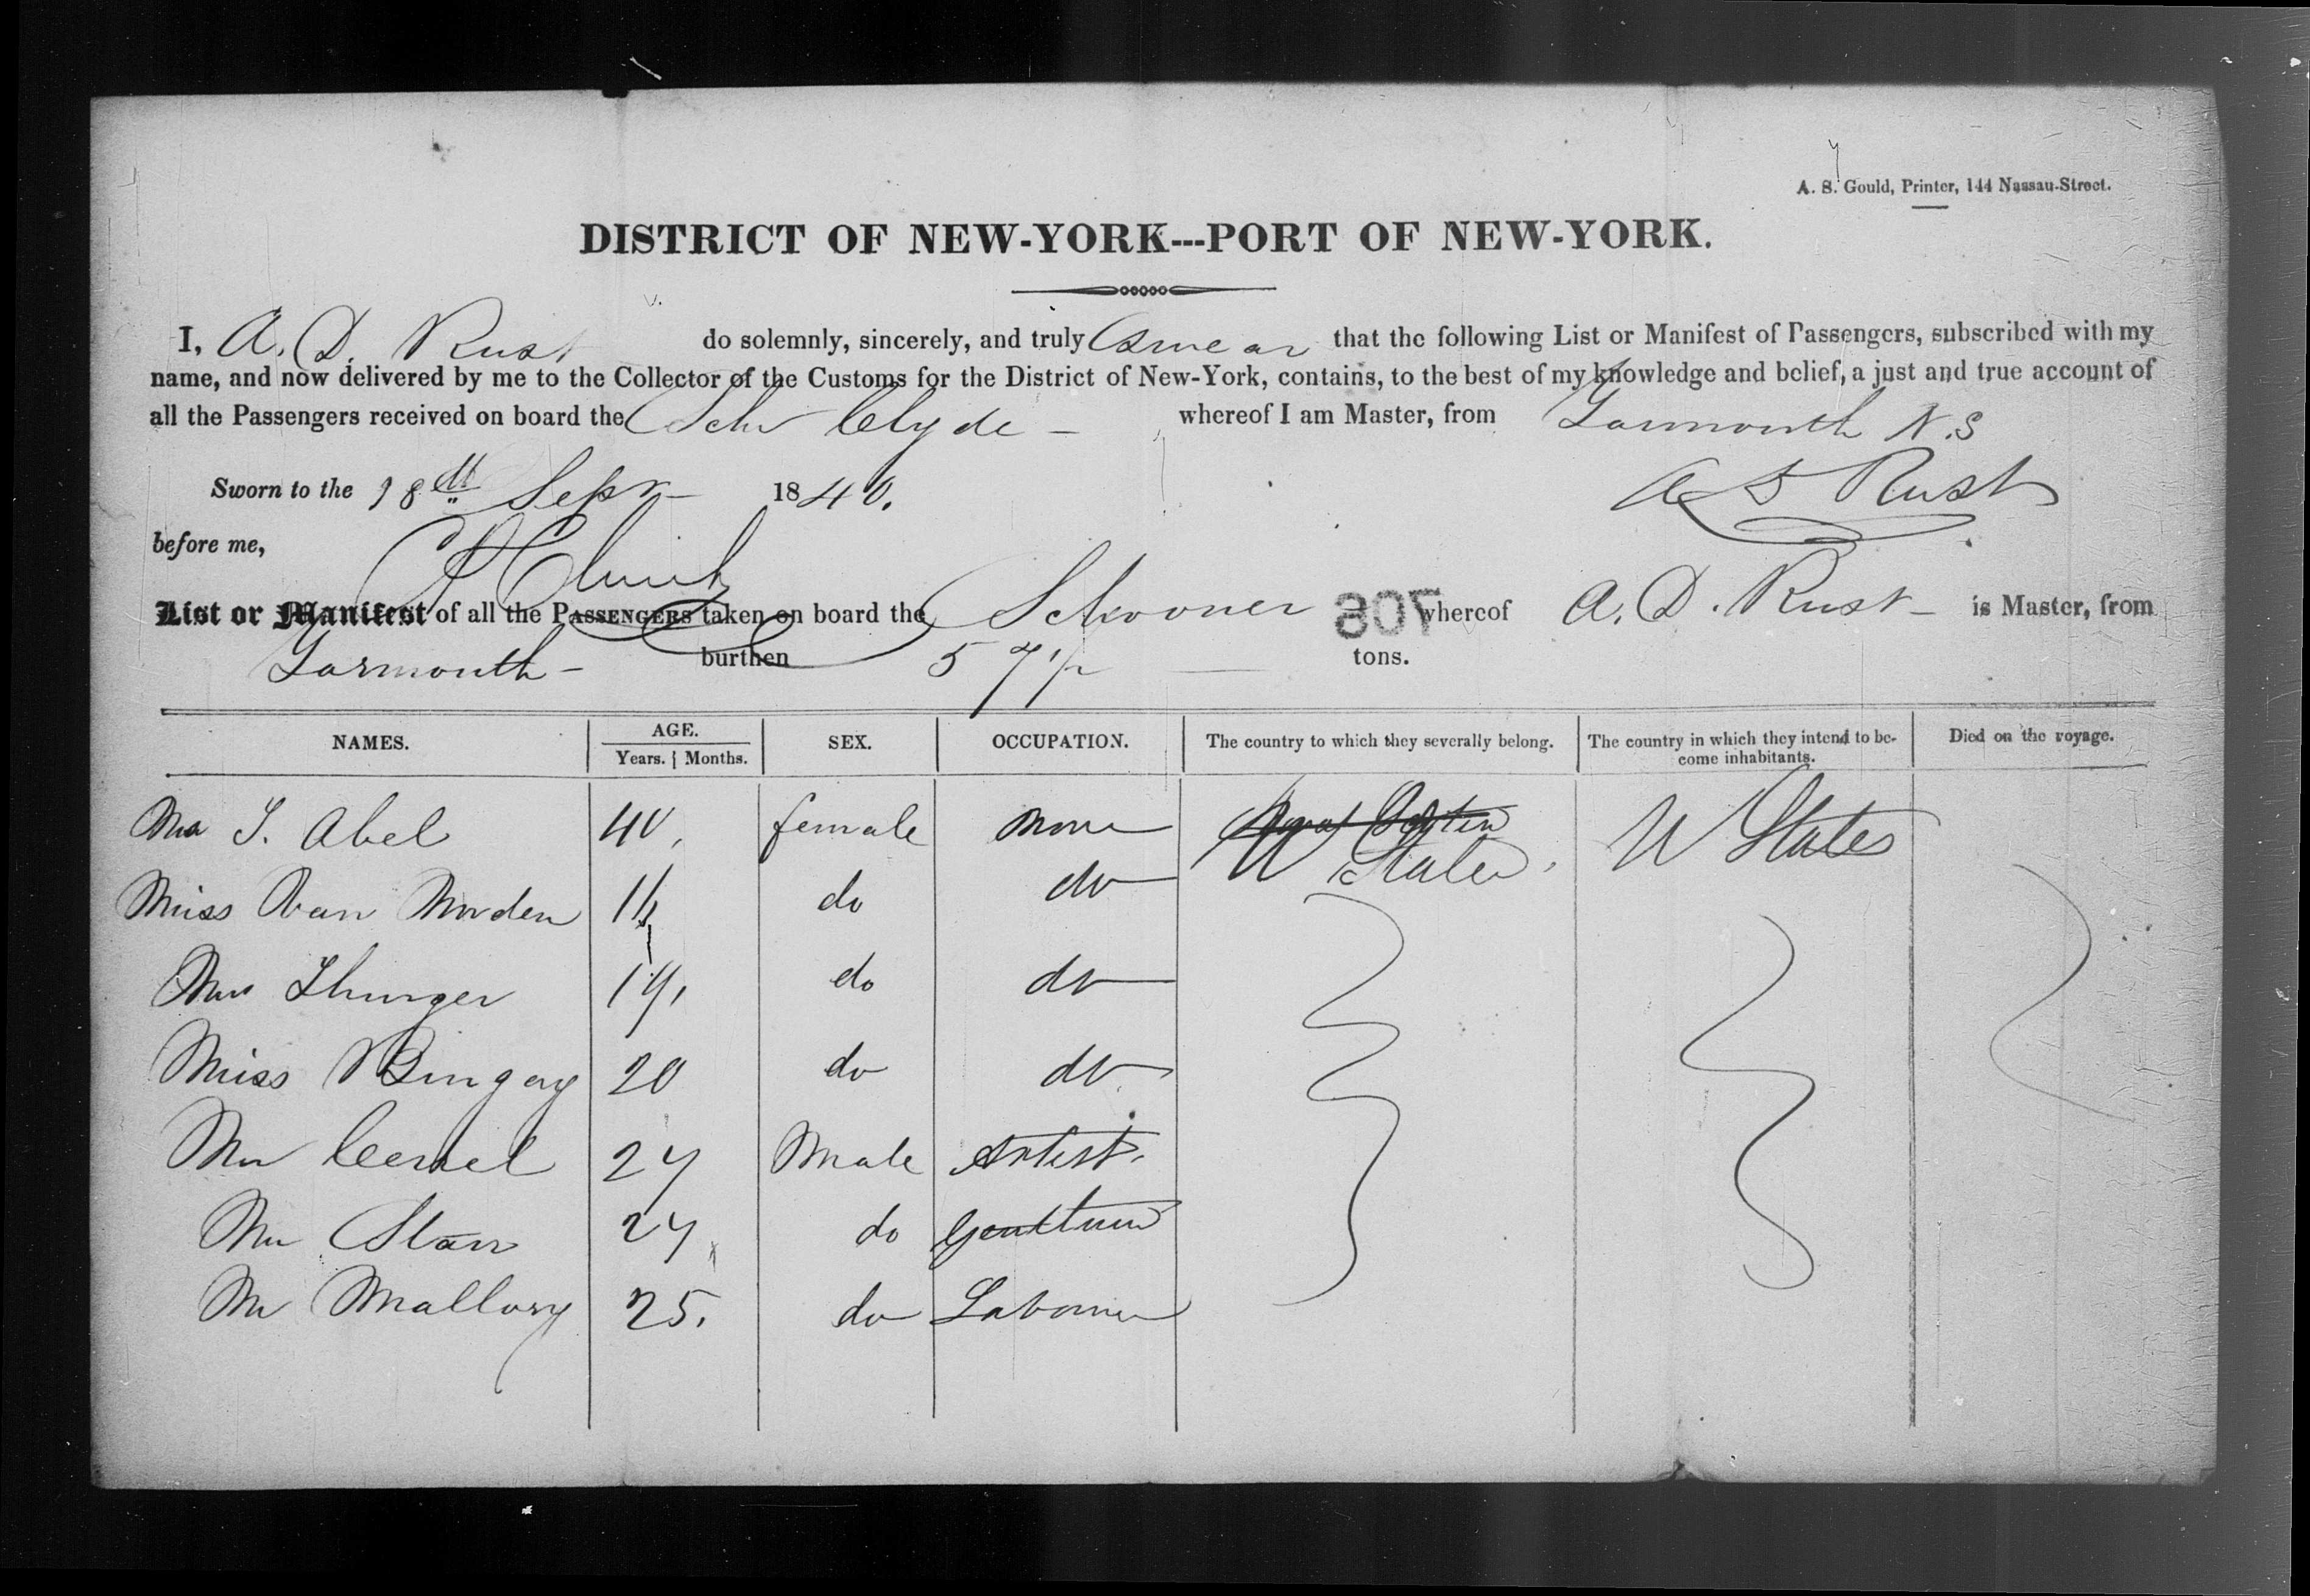 A. S. Gould, Printer, 144 Nassau-Street.
DISTRICT OF NEW-YORK---PORT OF NEW-YORK.
I, A. D. Rust do solemnly, sincerely, and truly swear that the following List or Manifest of Passengers, subscribed with my
name, and now delivered by me to the Collector of the Customs for the District of New-York, contains, to the best of my knowledge and belief, a just and true account of
all the Passengers received on board the Schr Clyde - whereof I am Master, from Yarmouth N.S
Sworn to the 18th Sepr 1840. A D Rust
before me,
List or Manifest of all the PASSENGERS taken on board the Schooner 807 whereof A. D. Rust is Master, from
Yarmouth - burthen 57 tons.
NAMES. AGE. SEX. OCCUPATION. The country to which they severally belong. The country in which they intend to be- Died on the voyage.
Years. Months. come inhabitants.
Abel 40, female none U States U States
Miss Van Norden 11 do do
Thurger 19, do do
Miss Bingay 20 do do
Mr 24 Male Artist.
Mr Starr 24 do
Mr Mallory 25. do Labourer